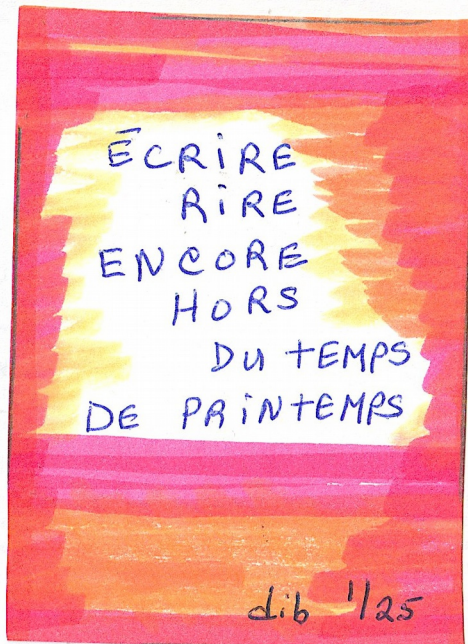 ÉCRiRE
RiRE
ENCORE
HORS
DU tEMPS
DE PRiNtEMPS
dib 1/25